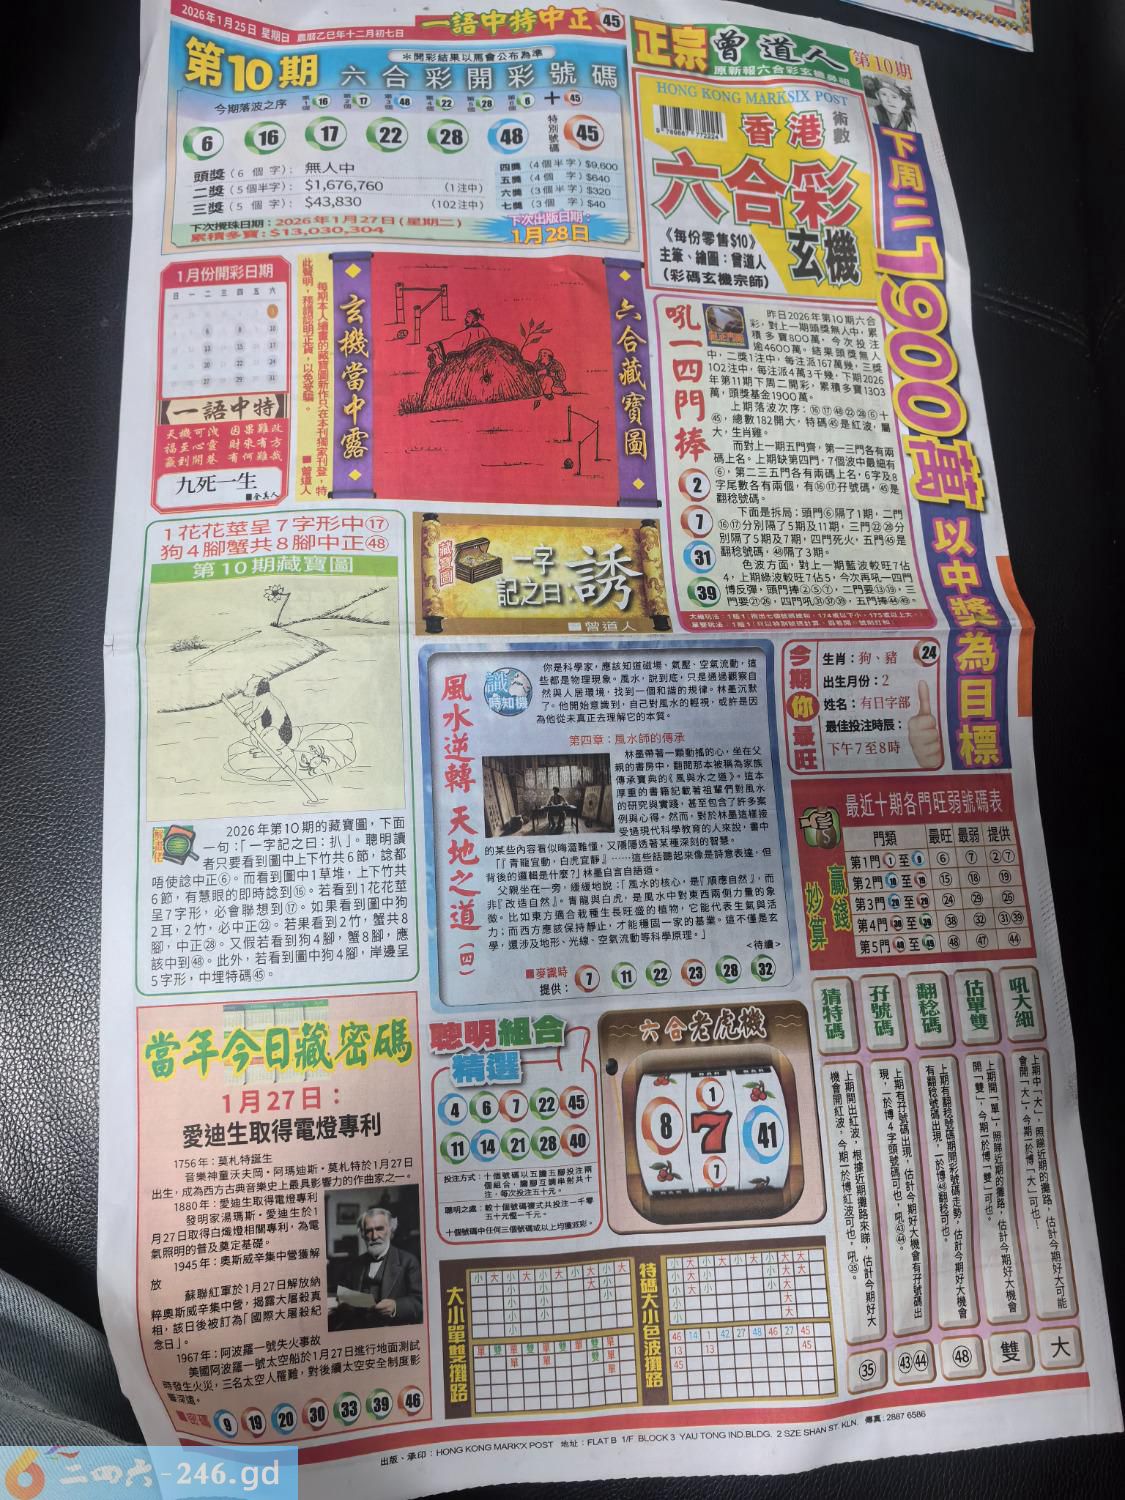 2026年1月25日 星期日 農曆乙巳年十二月初七日
一語中特中正㊺
第10期
＊開彩結果以馬會公布為準
六合彩開彩號碼
今期落波之序 16 17 48 22 28 6 + 45
6 16 17 22 28 48 特別號碼 45
頭獎(6個字): 無人中
二獎(5個半字): $1,676,760 (1注中)
三獎(5個字): $43,830 (102注中)
四獎(4個半字)$9,600
五獎(4個字)$640
六獎(3個半字)$320
七獎(3個字)$40
下次攪珠日期:2026年1月27日(星期二)
累積多寶:$13,030,304
下次出版日期:
1月28日
正宗曾道人
第10期
HONG KONG MARKSIX POST
香港
術數
六合彩
玄機
《每份零售$10》
主筆、繪圖:曾道人
(彩碼玄機宗師)
下周二1900萬以中獎為目標
1月份開彩日期
日 一 二 三 四 五 六
一語中特
九死一生
玄機當中露
六合藏寶圖
■曾道人
吼一四門捧
2
7
31
39
昨日2026年第10期六合
彩，對上一期頭獎無人中，累
積多寶800萬，今次投注
逾4600萬。結果頭獎無人
中，二獎1注中，每注派167萬幾，三獎
102注中，每注派4萬3千幾，下期2026
年第11期下周二開彩，累積多寶1303
萬，頭獎基金1900萬。
上期落波次序：⑯⑰㊽㉒㉘⑥十
㊺，總數182開大，特碼㊺是紅波，屬
大，生肖雞。
而對上一期五門齊，第一三門各有兩
碼上名。上期缺第四門，7個波中最細有
⑥，第二三五門各有兩碼上名，6字及8
字尾數各有兩個，有⑯⑰孖號碼，㊺是
翻稔號碼。
下面是拆局：頭門⑥隔了1期，二門
⑯⑰分別隔了5期及11期，三門㉒㉘分
別隔了5期及7期，四門死火，五門㊺是
翻稔號碼，㊽隔了3期。
色波方面，對上一期藍波較旺7佔
4，上期綠波較旺7佔5，今次再吼一四門
博反彈，頭門捧②⑤⑦，二門要⑬⑲，三
門要㉑㉖，四門吼㉛㊲㊴，五門捧㊹㊾。
1花花莖呈7字形中⑰
狗4腳蟹共8腳中正㊽
第10期藏寶圖
藏寶圖
一字
記之曰：誘
■曾道人
2026年第10期的藏寶圖，下面
一句：「一字記之曰：扒」。聰明讀
者只要看到圖中上下竹共6節，諗都
唔使諗中正⑥。而看到圖中1草堆，上下竹共
6節，有慧眼的即時諗到⑯。若看到1花花莖
呈7字形，必會聯想到⑰。如果看到圖中狗
2耳，2竹，必中正㉒。若果看到2竹，蟹共8
腳，中正㉘。又假若看到狗4腳，蟹8腳，應
該中到㊽。此外，若看到圖中狗4腳，岸邊呈
5字形，中埋特碼㊺。
風水逆轉 天地之道(四)
你是科學家，應該知道磁場、氣壓、空氣流動，這
些都是物理現象。風水，說到底，只是通過觀察自
然與人居環境，找到一個和諧的規律。林墨沉默
了。他開始意識到，自己對風水的輕視，或許是因
為他從未真正去理解它的本質。
第四章：風水師的傳承
林墨帶著一顆動搖的心，坐在父
親的書房中，翻閱那本被稱為家族
傳承寶典的《風與水之道》。這本
厚重的書籍記載著祖輩們對風水
的研究與實踐，甚至包含了許多案
例與心得。然而，對於林墨這樣接
受過現代科學教育的人來說，書中
的某些內容看似晦澀難懂，又隱隱透著某種深刻的智慧。
「『青龍宜動，白虎宜靜』……這些話聽起來像是詩意表達，但
背後的邏輯是什麼？」林墨自言自語道。
父親坐在一旁，緩緩地說：「風水的核心，是『順應自然』，而
非『改造自然』。青龍與白虎，是風水中對東西兩側力量的象
徵。比如東方適合栽種生長旺盛的植物，它能代表生氣與活
力；而西方應該保持靜止，才能穩固一家的基業。這不僅是玄
學，還涉及地形、光線、空氣流動等科學原理。」
<待續>
■麥識時
提供： 7 11 22 23 28 32
今期你最旺
生肖：狗、豬 24
出生月份：2
姓名：有日字部
最佳投注時辰：
下午7至8時
最近十期各門旺弱號碼表
贏錢妙算
門類 最旺 最弱 提供
第1門 ⑥ ⑦ ②⑦
第2門 ⑮ ⑱ ⑲
第3門 ㉔ ㉙ ㉕
第4門 ㊳ ㉜ ㉛㊴
第5門 ㊽ ㊼ ㊹
當年今日藏密碼
1月27日：
愛迪生取得電燈專利
1756年：莫札特誕生
音樂神童沃夫岡・阿瑪迪斯・莫札特於1月27日
出生，成為西方古典音樂史上最具影響力的作曲家之一。
1880年：愛迪生取得電燈專利
發明家湯瑪斯・愛迪生於1
月27日取得白熾燈相關專利，為電
氣照明的普及奠定基礎。
1945年：奧斯威辛集中營獲解
放
蘇聯紅軍於1月27日解放納
粹奧斯威辛集中營，揭露大屠殺真
相，該日後被訂為「國際大屠殺紀
念日」。
1967年：阿波羅一號失火事故
美國阿波羅一號太空船於1月27日進行地面測試
時發生火災，三名太空人罹難，對後續太空安全制度影
響深遠。
■密碼 9 19 20 30 33 39 46
聰明組合
精選
4 6 7 22 45
11 14 21 28 40
投注方式：十個號碼以五膽五腳投注兩
個組合，膽腳互調串射共十
注，每次投注五十元。
聰明之處：較十個號碼複式共投注一千零
五十元慳一千元。
十個號碼中任何三個號碼或以上均獲派彩。
六合老虎機
8 1 7 7 41
猜特碼
孖號碼
翻稔碼
估單雙
吼大細
上期開出紅波，根據近期攤路來睇，估計今期好大機會開紅波，今期一於博紅波可也，吼㉟。
上期有孖號碼出現，估計今期好大機會有孖號碼出現，一於博4字頭號碼可也，吼㊸㊹。
上期有翻稔號碼期開彩號碼走勢，估計今期好大機會有翻稔號碼出現，一於博㊽翻稔可也。
上期開「單」，照睇近期的攤路，估計今期好大機會開「雙」，今期一於博「雙」可也。
上期中「大」，照睇近期的攤路，估計今期好大可能會開「大」，今期一於博「大」可也！
㉟
㊸㊹
㊽
雙
大
大小單雙攤路
特碼大小色波攤路
46 14 1 42 27 48 46 27 45
13 13 45
45
出版、承印：HONG KONG MARK'X POST 地址：FLAT B 1/F BLOCK 3 YAU TONG IND.BLDG. 2 SZE SHAN ST. KLN. 傳真：2887 6586
二四六-246.gd